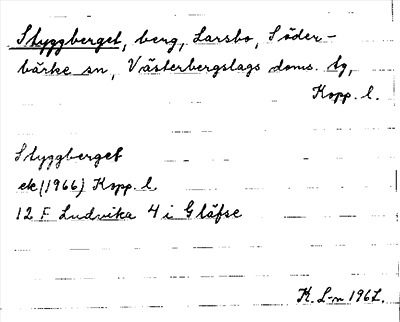 Styggberget, berg, Larsbo, Söder-
bärke sn, Västerbergslags doms. tg,
Kopp. l.
Styggberget
ek (1966) Kopp. l.
12 F Ludvika 4 i Gläfse
K. L-m 1967.